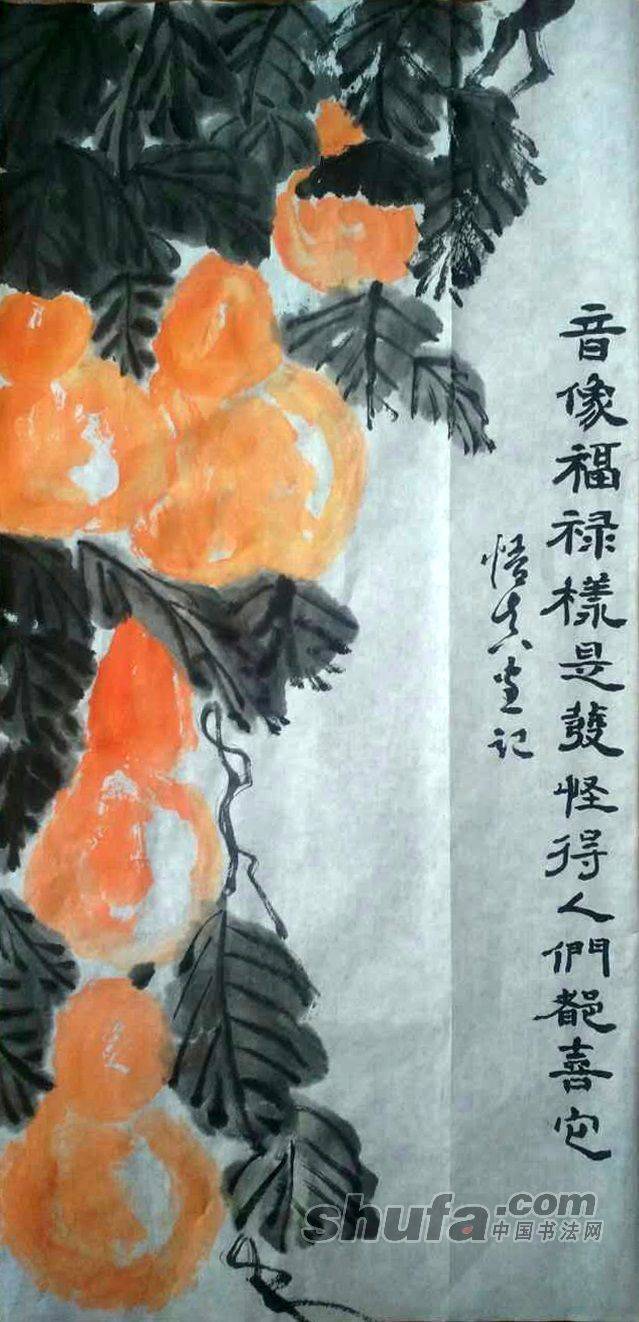 音像福禄樣是發怪得人們都喜它
悟真堂记
shufa.com
中国书法网